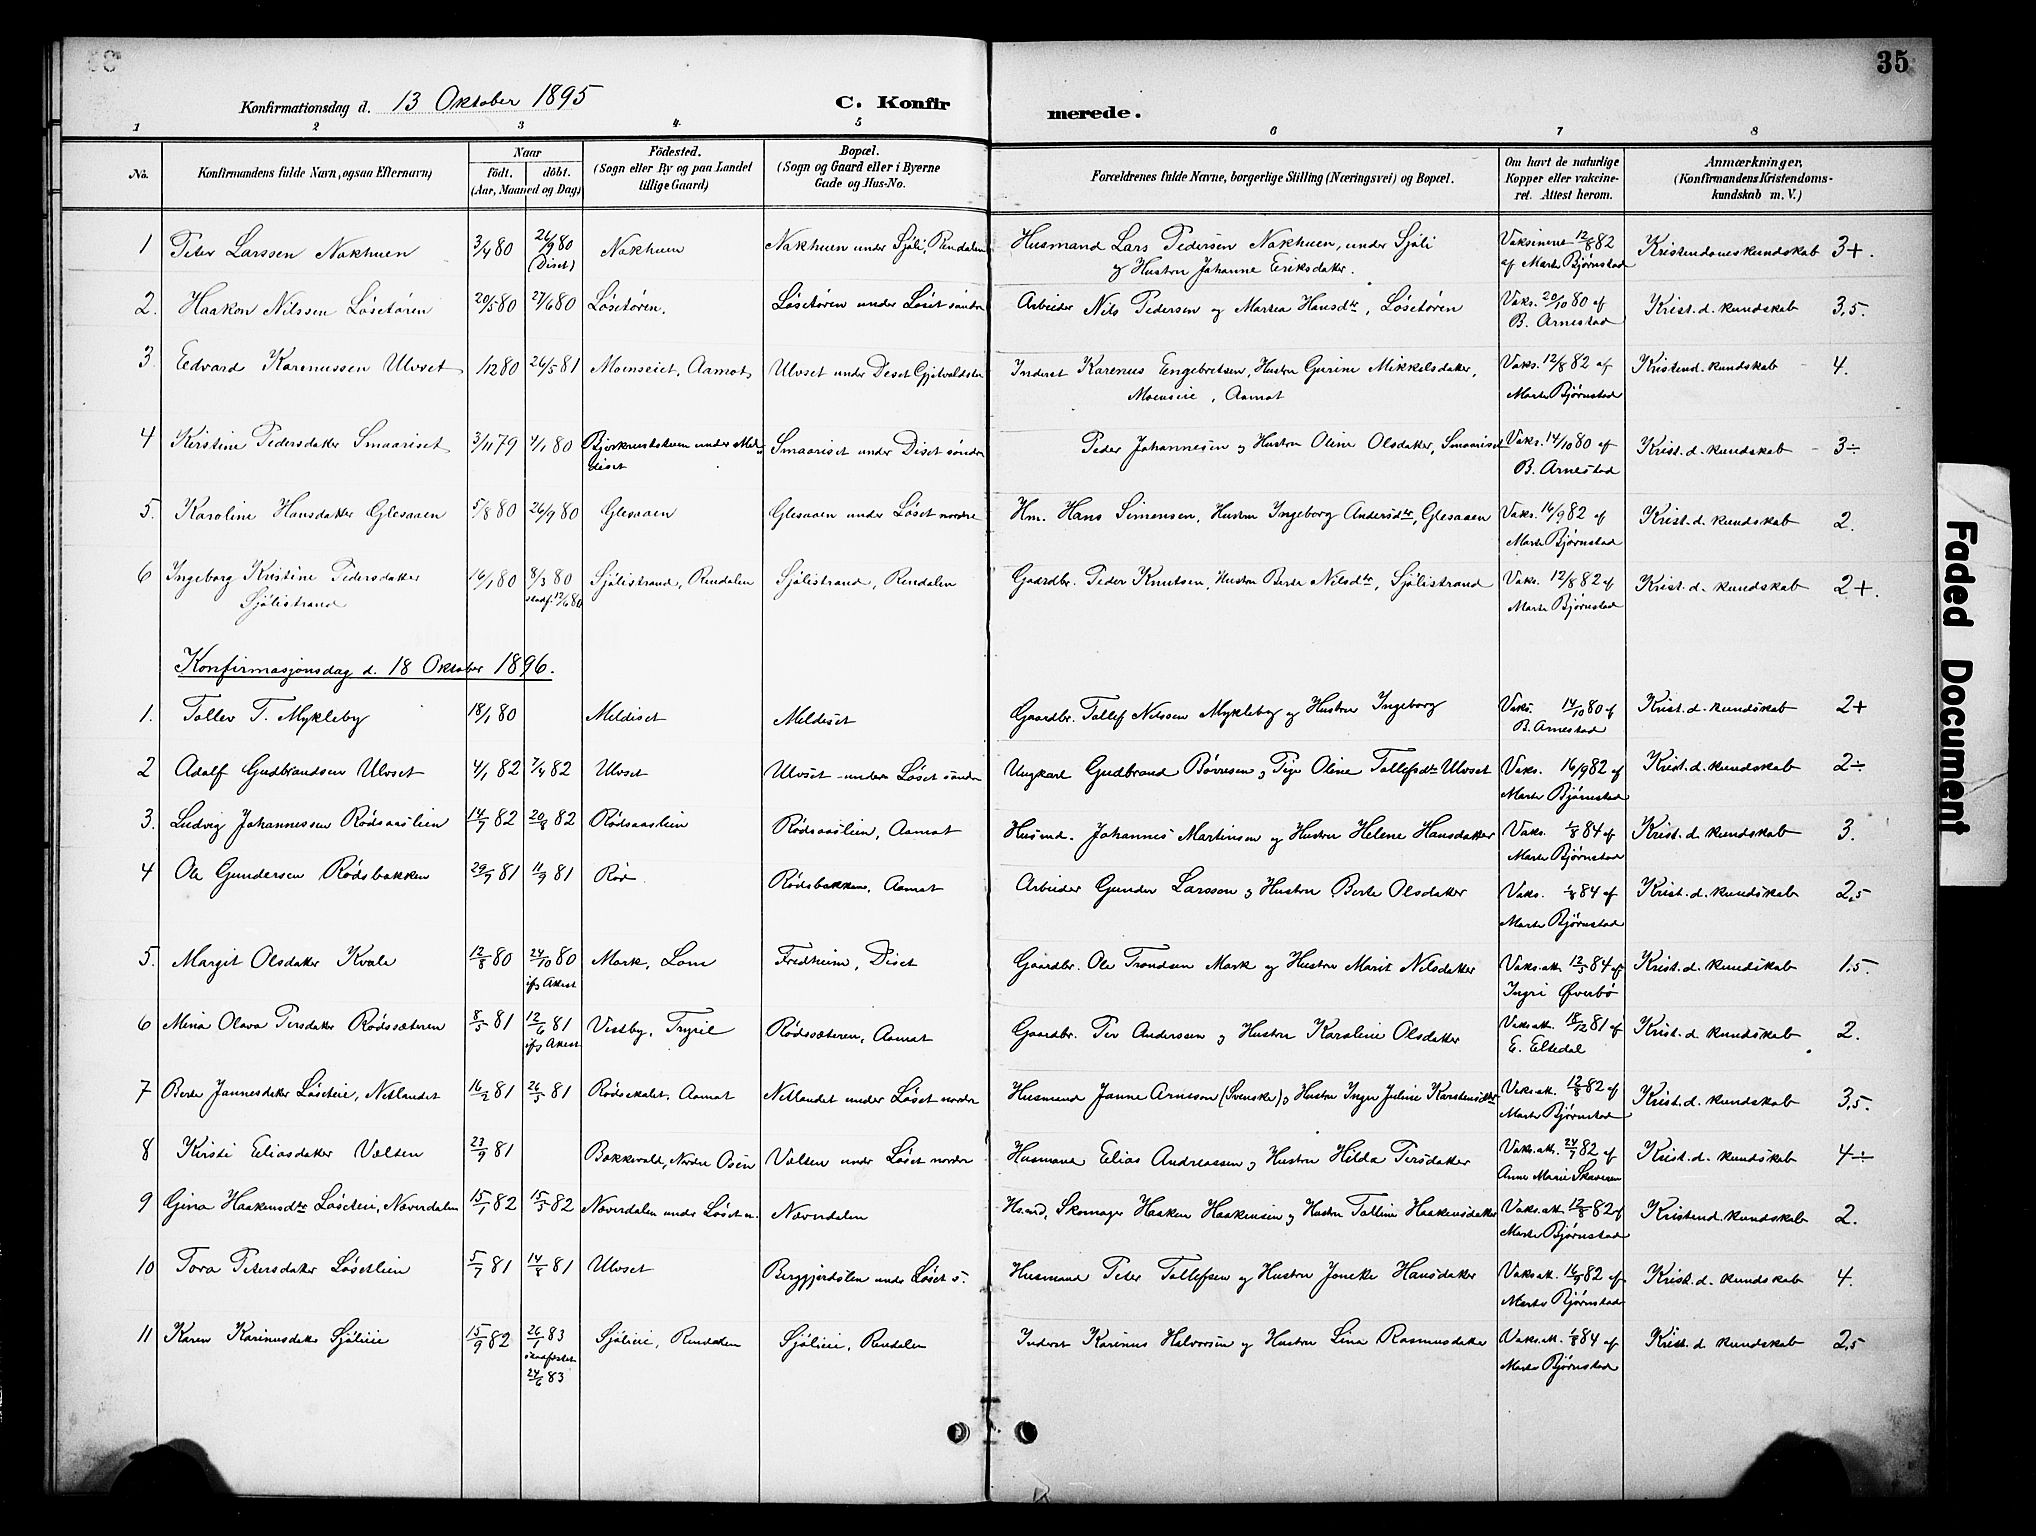 35
Konfirmationsdag d. 13 Oktober 1895 C. Konfirmerede.
1 2 3 4 5 6 7 8
No. Konfirmandens fulde Navn, ogsaa Efternavn) Naar födt. döbt. (Aar, Maaned og Dag) Födested. (Sogn eller By og paa Landet tillige Gaard) Bopæl. (Sogn og Gaard eller i Byerne Gade og Hus-No. Forældrenes fulde Navne, borgerlige Stilling (Næringsvei) og Bopæl. Om havt de naturlige Kopper eller vakcineret. Attest herom. Anmærkninger, (Konfirmandens Kristendomskundskab m. V.)
1 Peter Larssen Nakhuen 3/4 80 26/9 80 (Diset) Nakhuen Nakhuen under Sjøli, Rendalen Husmand Lars Pedersen Nakhuen, under Sjøli og Hustru Johanne Eriksdatter. Vaksineret 12/8 82 af Marte Bjørnstad Kristendomskundskab 3+.
2. Haakon Nilssen Løsetøren 20/5 80 27/6 80 Løsetøren. Løsetøren under Løset søndre Arbeider Nils Pedersen og Martea Hansdtr, Løsetøren Vaks. 20/10 80 af B. Arnestad Krist.d. kundskab 3,5.
3. Edvard Karenussen Ulvset 1/12 80 26/5 81 Moenseiet, Aamot Ulvset under Diset Gjetvoldsto Inderst Karenus Engebretsen, Hustru Gurine Mikkelsdatter, Moenseie, Aamot Vaks. 12/8 82 af Marte Bjørnstad Kristend. kundskab 4.
4 Kirstine Pedersdatter Smaariset 3/11 79 4/1 80 under Meldiset Smaariset under Diset søndre Peder Johannesen og Hustru Oline Olsdatter, Smaariset Vaks. 14/10 80 af B. Arnestad Krist.d. kundskab 3÷
5. Karoline Hansdatter Glesaaen 5/8 80 26/9 80 Glesaaen Glesaaen under Løset nordre Hm. Hans Simensen, Hustru Ingeborg Andersdtr, Glesaaen Vaks. 16/9 82 af Marte Bjørnstad Krist.d. kundskab 2.
6 Ingeborg Kristine Pedersdatter Sjølistrand 16/1 80 8/3 80 stadf. 17/6 80 Sjølistrand, Rendalen Sjølistrand, Rendalen Gaardbr. Peder Knutsen, Hustru Berte Nilsdtr, Sjølistrand Vaks. 12/8 82 af Marte Bjørnstad Krist.d. kundskab 2+.
Konfirmasjonsdag d. 18 Oktober 1896.
1. Tollev T. Mykleby 18/1 80 Meldiset Meldiset Gaardbr. Tollef Nilssen Mykleby og Hustru Ingeborg Vaks. 14/10 80 af B. Arnestad Krist.d. kundskab 2+
2 Adolf Gudbrandsen Ulvset 4/1 82 7/4 82 Ulvset Ulvset under Løset søndre Ungkarl Gudbrand Børresen og Pige Oline Tollefsdtr Ulvset Vaks. 16/9 82 af Marte Bjørnstad Krist.d. kundskab 2÷
3. Ludvig Johannessen Rødsaaslien 14/7 82 20/8 82 Rødsaaslien Rødsaaslien, Aamot Husmd. Johannes Martinsen og Hustru Helene Hansdatter Vaks. 1/8 84 af Marte Bjørnstad Krist.d. kundskab 3.
4 Ole Gundersen Rødsbakken 29/7 81 11/9 81 Rød Rødsbakken, Aamot Arbeider Gunder Larsson og Hustru Berte Olsdatter Vaks. 1/8 84 af Marte Bjørnstad Krist.d. kundskab 2,5
5. Margit Olsdatter Kvale 12/8 80 24/10 80 ifg Attest Mork, Lom Fredheim, Diset Gaardbr. Ole Trondsen Mork og Hustru Marit Nilsdatter Vaks.att. 12/5 84 af Ingri Øverbø Krist.d. kundskab 1,5.
6 Mina Olava Persdatter Rødssæteren 8/5 81 12/6 81 ifg Attest Vestby, Trysil Rødssæteren, Aamot Gaardbr. Per Anderssen og Hustru Karoline Olsdatter Vaks att. 18/12 81 af E. Eltedal Krist.d. kundskab 2.
7 Berte Jannesdatter Løseteie, Netlandet 16/2 81 26/5 81 Rødsskalet, Aamot Netlandet under Løset nordre Husmand Janne Arnesson (Svenske) og Hustru Inger Juline Karstensdtr Vaks.att. 12/8 82 af Marte Bjørnstad Krist.d. kundskab 3,5.
8 Kirsti Eliasdatter Vælten 23/9 81 Bakkevold, Nordre Osen Vælten under Løset nordre Husmand Elias Andreassen og Hustru Hilda Persdatter Vaks.att. 24/7 82 af Anne Marie Skaveren Krist.d. kundskab 4÷
9 Gina Haakensdtr Løseteie, Næverdalen 15/1 82 15/5 82 Næverdalen under Løset n. Næverdalen Hsmd, Skomager Haaken Haakensen og Hustru Talline Haakensdatter Vaks.att. 12/8 82 af Marte Bjørnstad Kristend. kundskab 2.
10 Tora Petersdatter Løsetlien 5/7 81 14/8 81 Ulvset Berggjerdslien under Løset s. Husmand Peter Tollefsen og Hustru Joneke Hansdatter Vaks att. 16/9 82 af Marte Bjørnstad Krist.d. kundskab 4.
11 Karen Karinusdatter Sjølieie 15/9 82 26/1 83 stadfæstet 24/6 83 Sjølieie, Rendalen Sjølieie, Rendalen Inderst Karinus Halvorsen og Hustru Lina Rasmusdatter Vaks.att. 1/8 84 af Marte Bjørnstad Krist.d. kundskab 2,5
Faded Document